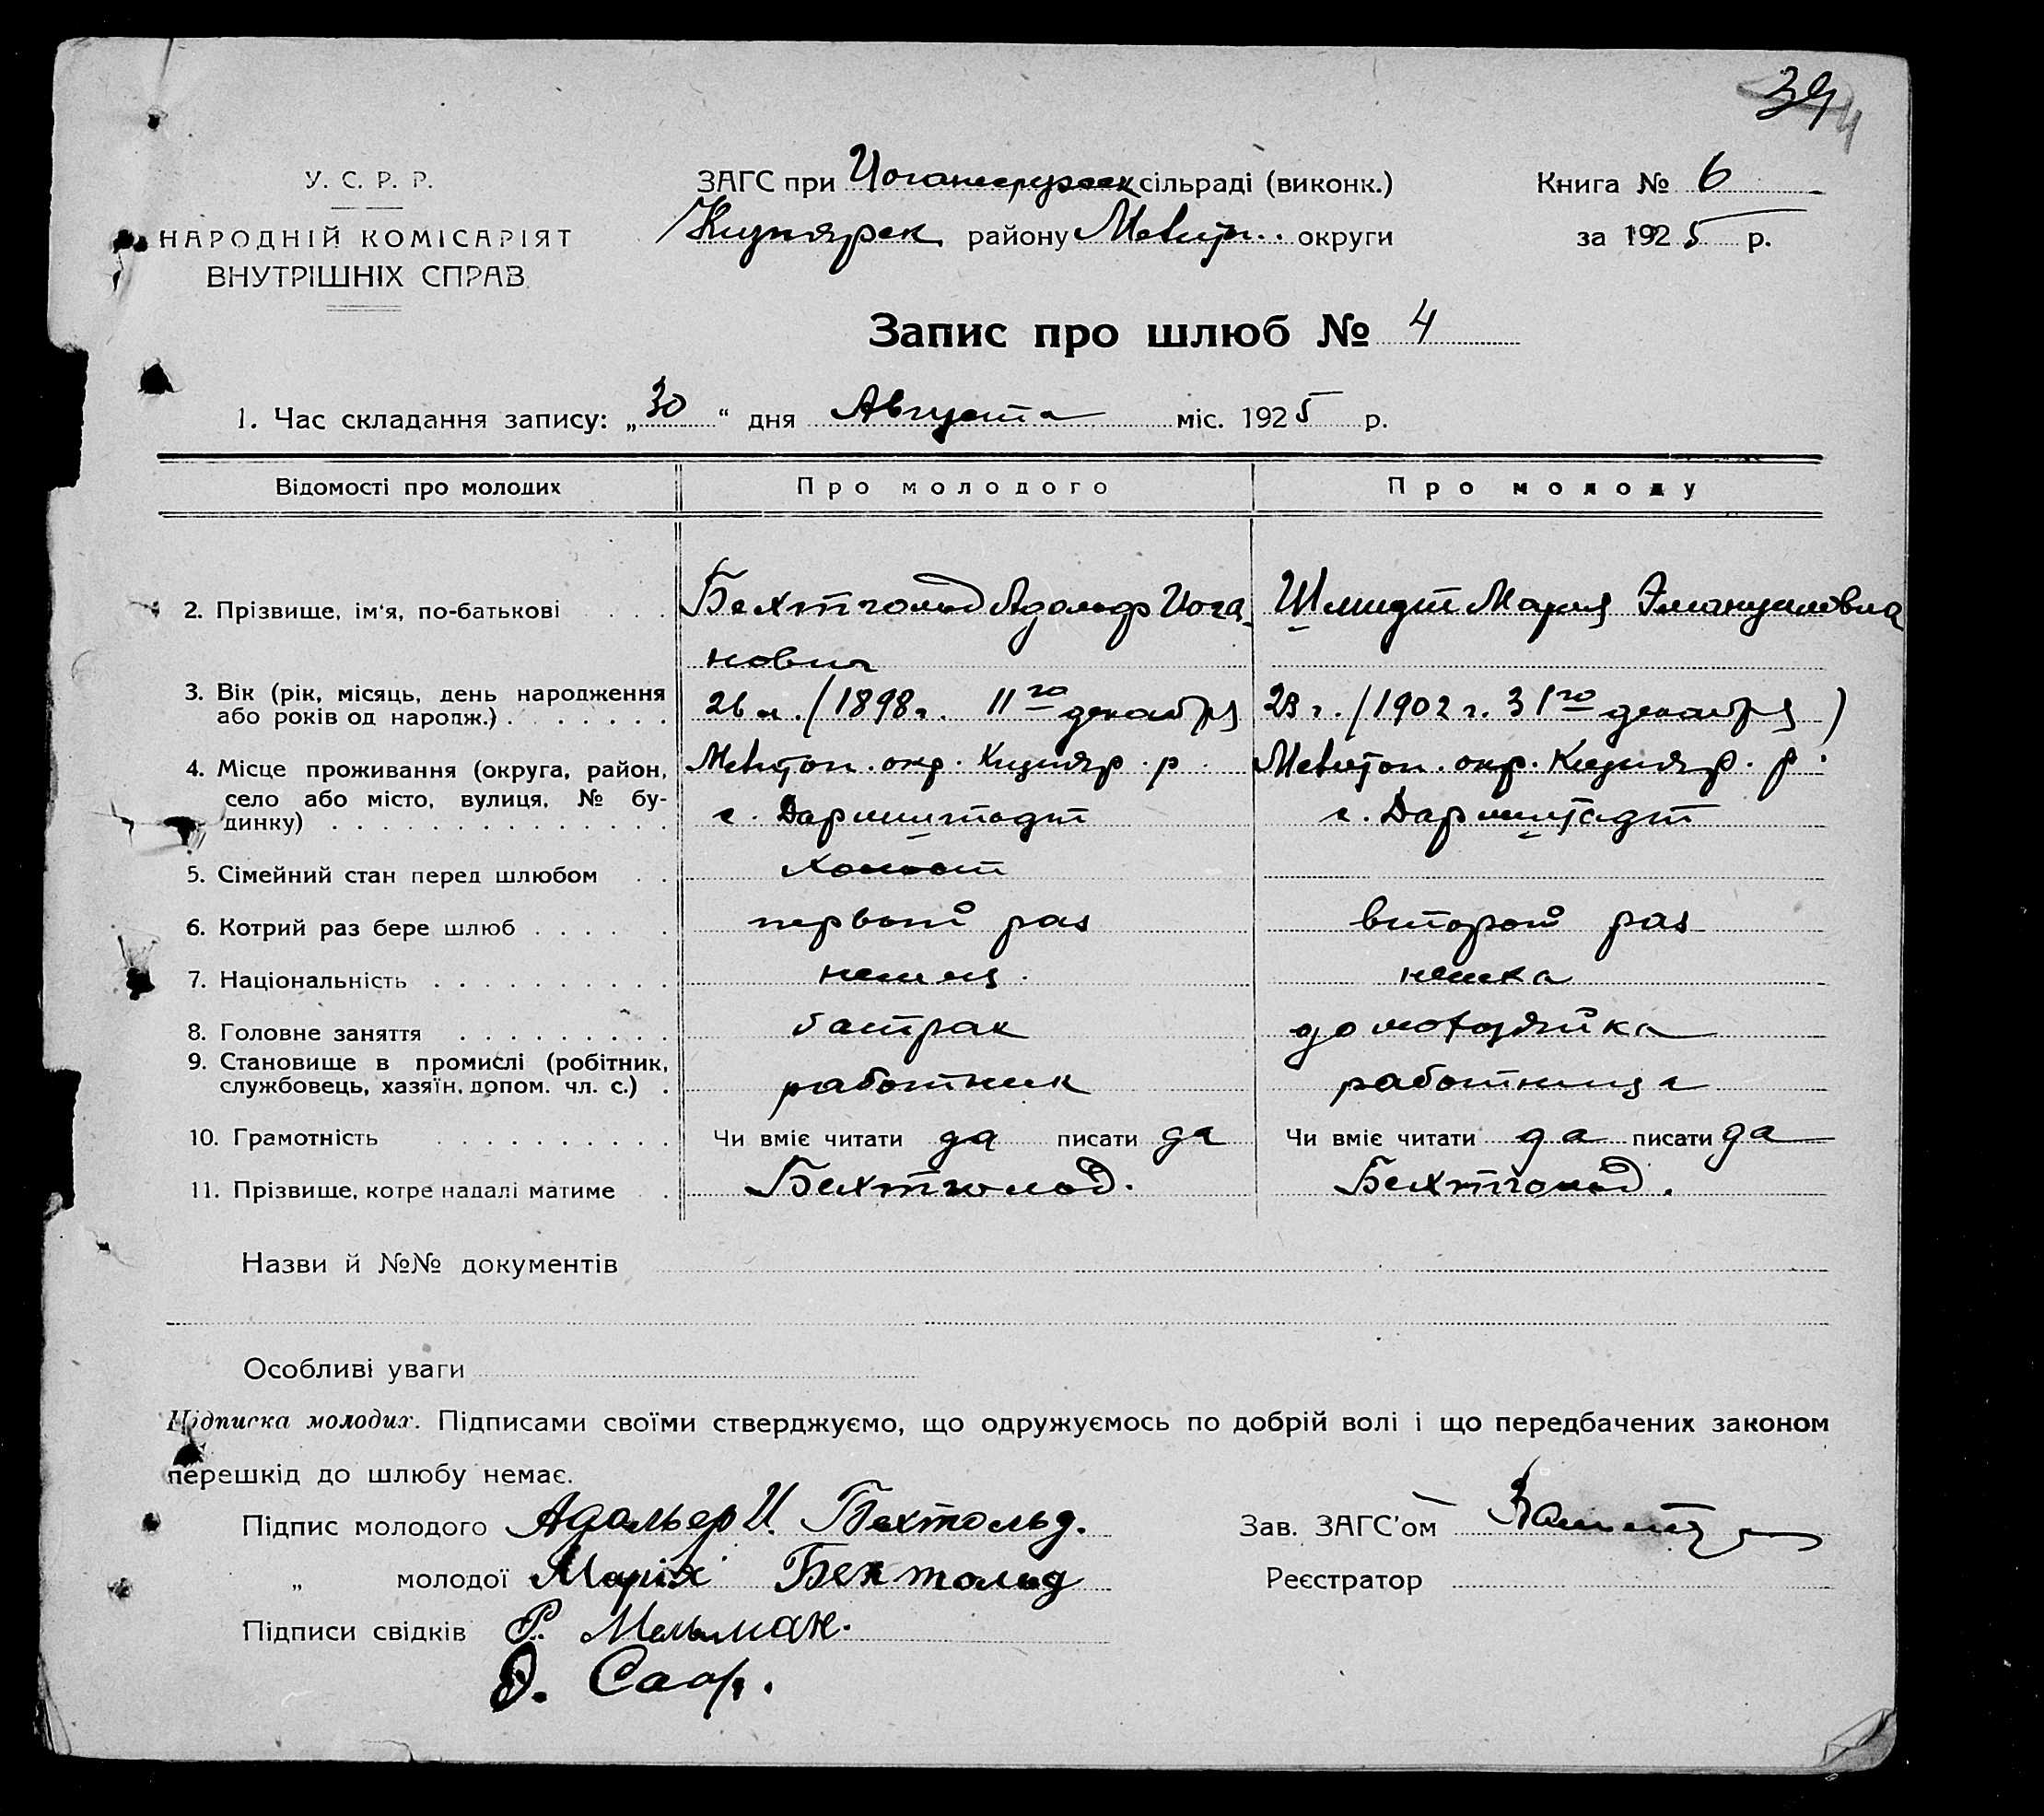 39
4
У. С. Р. Р.
НАРОДНІЙ КОМІСАРІЯТ
ВНУТРІШНІХ СПРАВ
ЗАГС при Иоганесрузск сільраді (виконк.)
Кизиярск району Мелит.. округи
Книга № 6
за 1925 р.
Запис про шлюб № 4
1. Час складання запису: „30“ дня Августа міс. 1925 р.
Відомості про молодих Про молодого Про молоду
2. Прізвище, ім'я, по-батькові Бехтгольд Адольф Иога- Шмидт Мария Эмануиловна
нович
3. Вік (рік, місяць, день народження
або років од народж.) 26 л. /1898 г. 11го декабря 23 г. /1902 г. 31го декабря)
4. Місце проживання (округа, район, Мелитоп. окр. Кизияр. р. Мелитоп. окр. Кизияр. р.
село або місто, вулиця, № бу-
динку) с. Дармштадт с. Дармштадт
5. Сімейний стан перед шлюбом холост
6. Котрий раз бере шлюб первый раз второй раз
7. Національність немец немка
8. Головне заняття батрак домохозяйка
9. Становище в промислі (робітник,
службовець, хазяїн, допом. чл. с.) работник работница
10. Грамотність Чи вміє читати да писати да Чи вміє читати да писати да
11. Прізвище, котре надалі матиме Бехтгольд. Бехтгольд.
Назви й №№ документів
Особливі уваги
Підписка молодих. Підписами своїми стверджуємо, що одружуємось по добрій волі і що передбачених законом
перешкід до шлюбу немає.
Підпис молодого Адольф И. Бехтольд. Зав. ЗАГС'ом
„ молодої Марія Бехтольд Реєстратор
Підписи свідків Р. Мельман.
О. Саар.